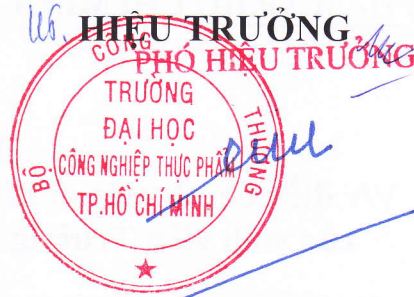 HIỆU TRƯỞNG
PHÓ HIỆU TRƯỞNG
BỘ CÔNG THƯƠNG
TRƯỜNG
ĐẠI HỌC
CÔNG NGHIỆP THỰC PHẨM
TP.HỒ CHÍ MINH